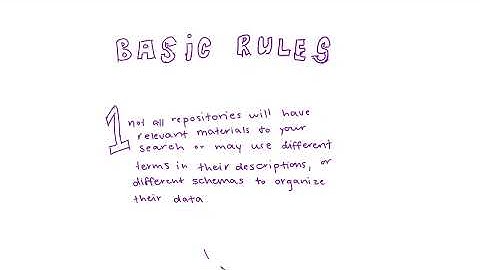 BASiC RULES
1 not all repositories will have
relevant materials to your
search or may use different
terms in their descriptions, or
different schemas to organize
their data